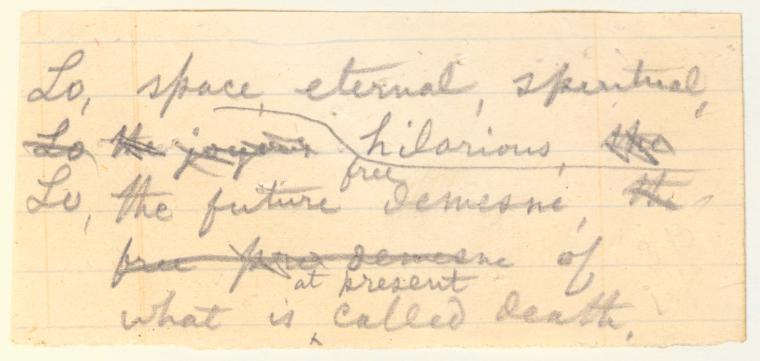 Lo, space, eternal, spiritual,
Lo the joyous hilarious, the
free
Lo, the future demesne, th
free demesne of
at present
what is ‸ called death,